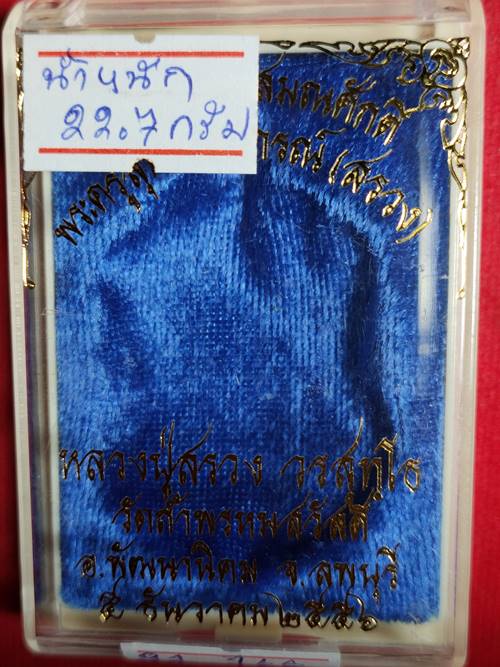 น้ำหนัก
22.7 กรัม
สมณศักดิ์
พระครู
(สรวง)
หลวงปู่สรวง วรสุทฺโธ
วัดถ้ำพรหมสวัสดิ์
อ.พัฒนานิคม จ.ลพบุรี
๕ ธันวาคม ๒๕๕๖